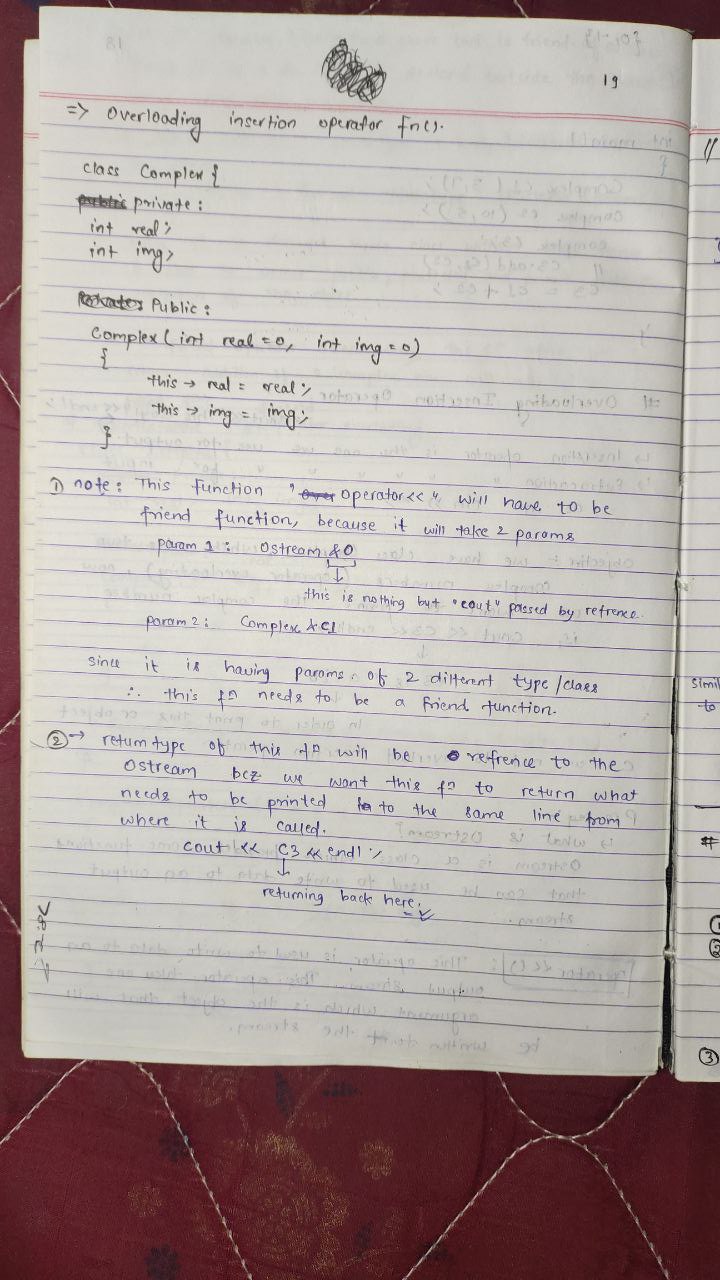 19
=> Overloading insertion operator fn().
class Complex {
private :
int real;
int img;
Public :
Complex ( int real = 0, int img = 0)
{
this → real = real;
this → img = img;
}
① note : This function "operator<<" will have to be
friend function, because it will take 2 params
param 1 : Ostream &O
↓
this is nothing but "cout" passed by refrence.
param 2 : Complex &C1
Since it is having params of 2 different type/class
∴ this fn needs to be a friend function.
② → return type of this fn will be refrence to the
Ostream bcz we want this fn to return what
needs to be printed to the same line from
where it is called.
cout << C3 << endl;
↓
returning back here.
simil
to
#
①
②
③